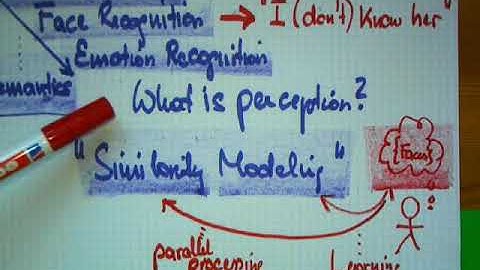 Face Recognition → "I (don't) Know her"
Emotion Recognition
Semantics
What is perception?
"Similarity Modeling"
{Focus}
parallel
processing
Learning